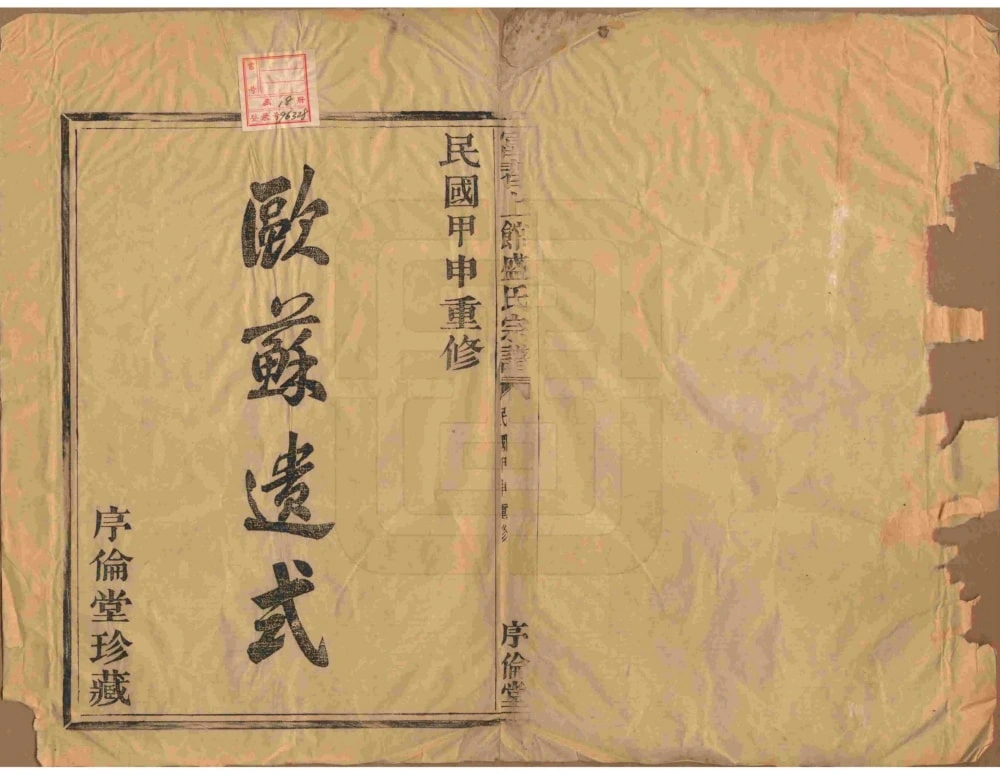 富春上館盛氏宗譜
民國甲申重修
序倫堂
民國甲申重修
歐蘇遺式
序倫堂珍藏
18